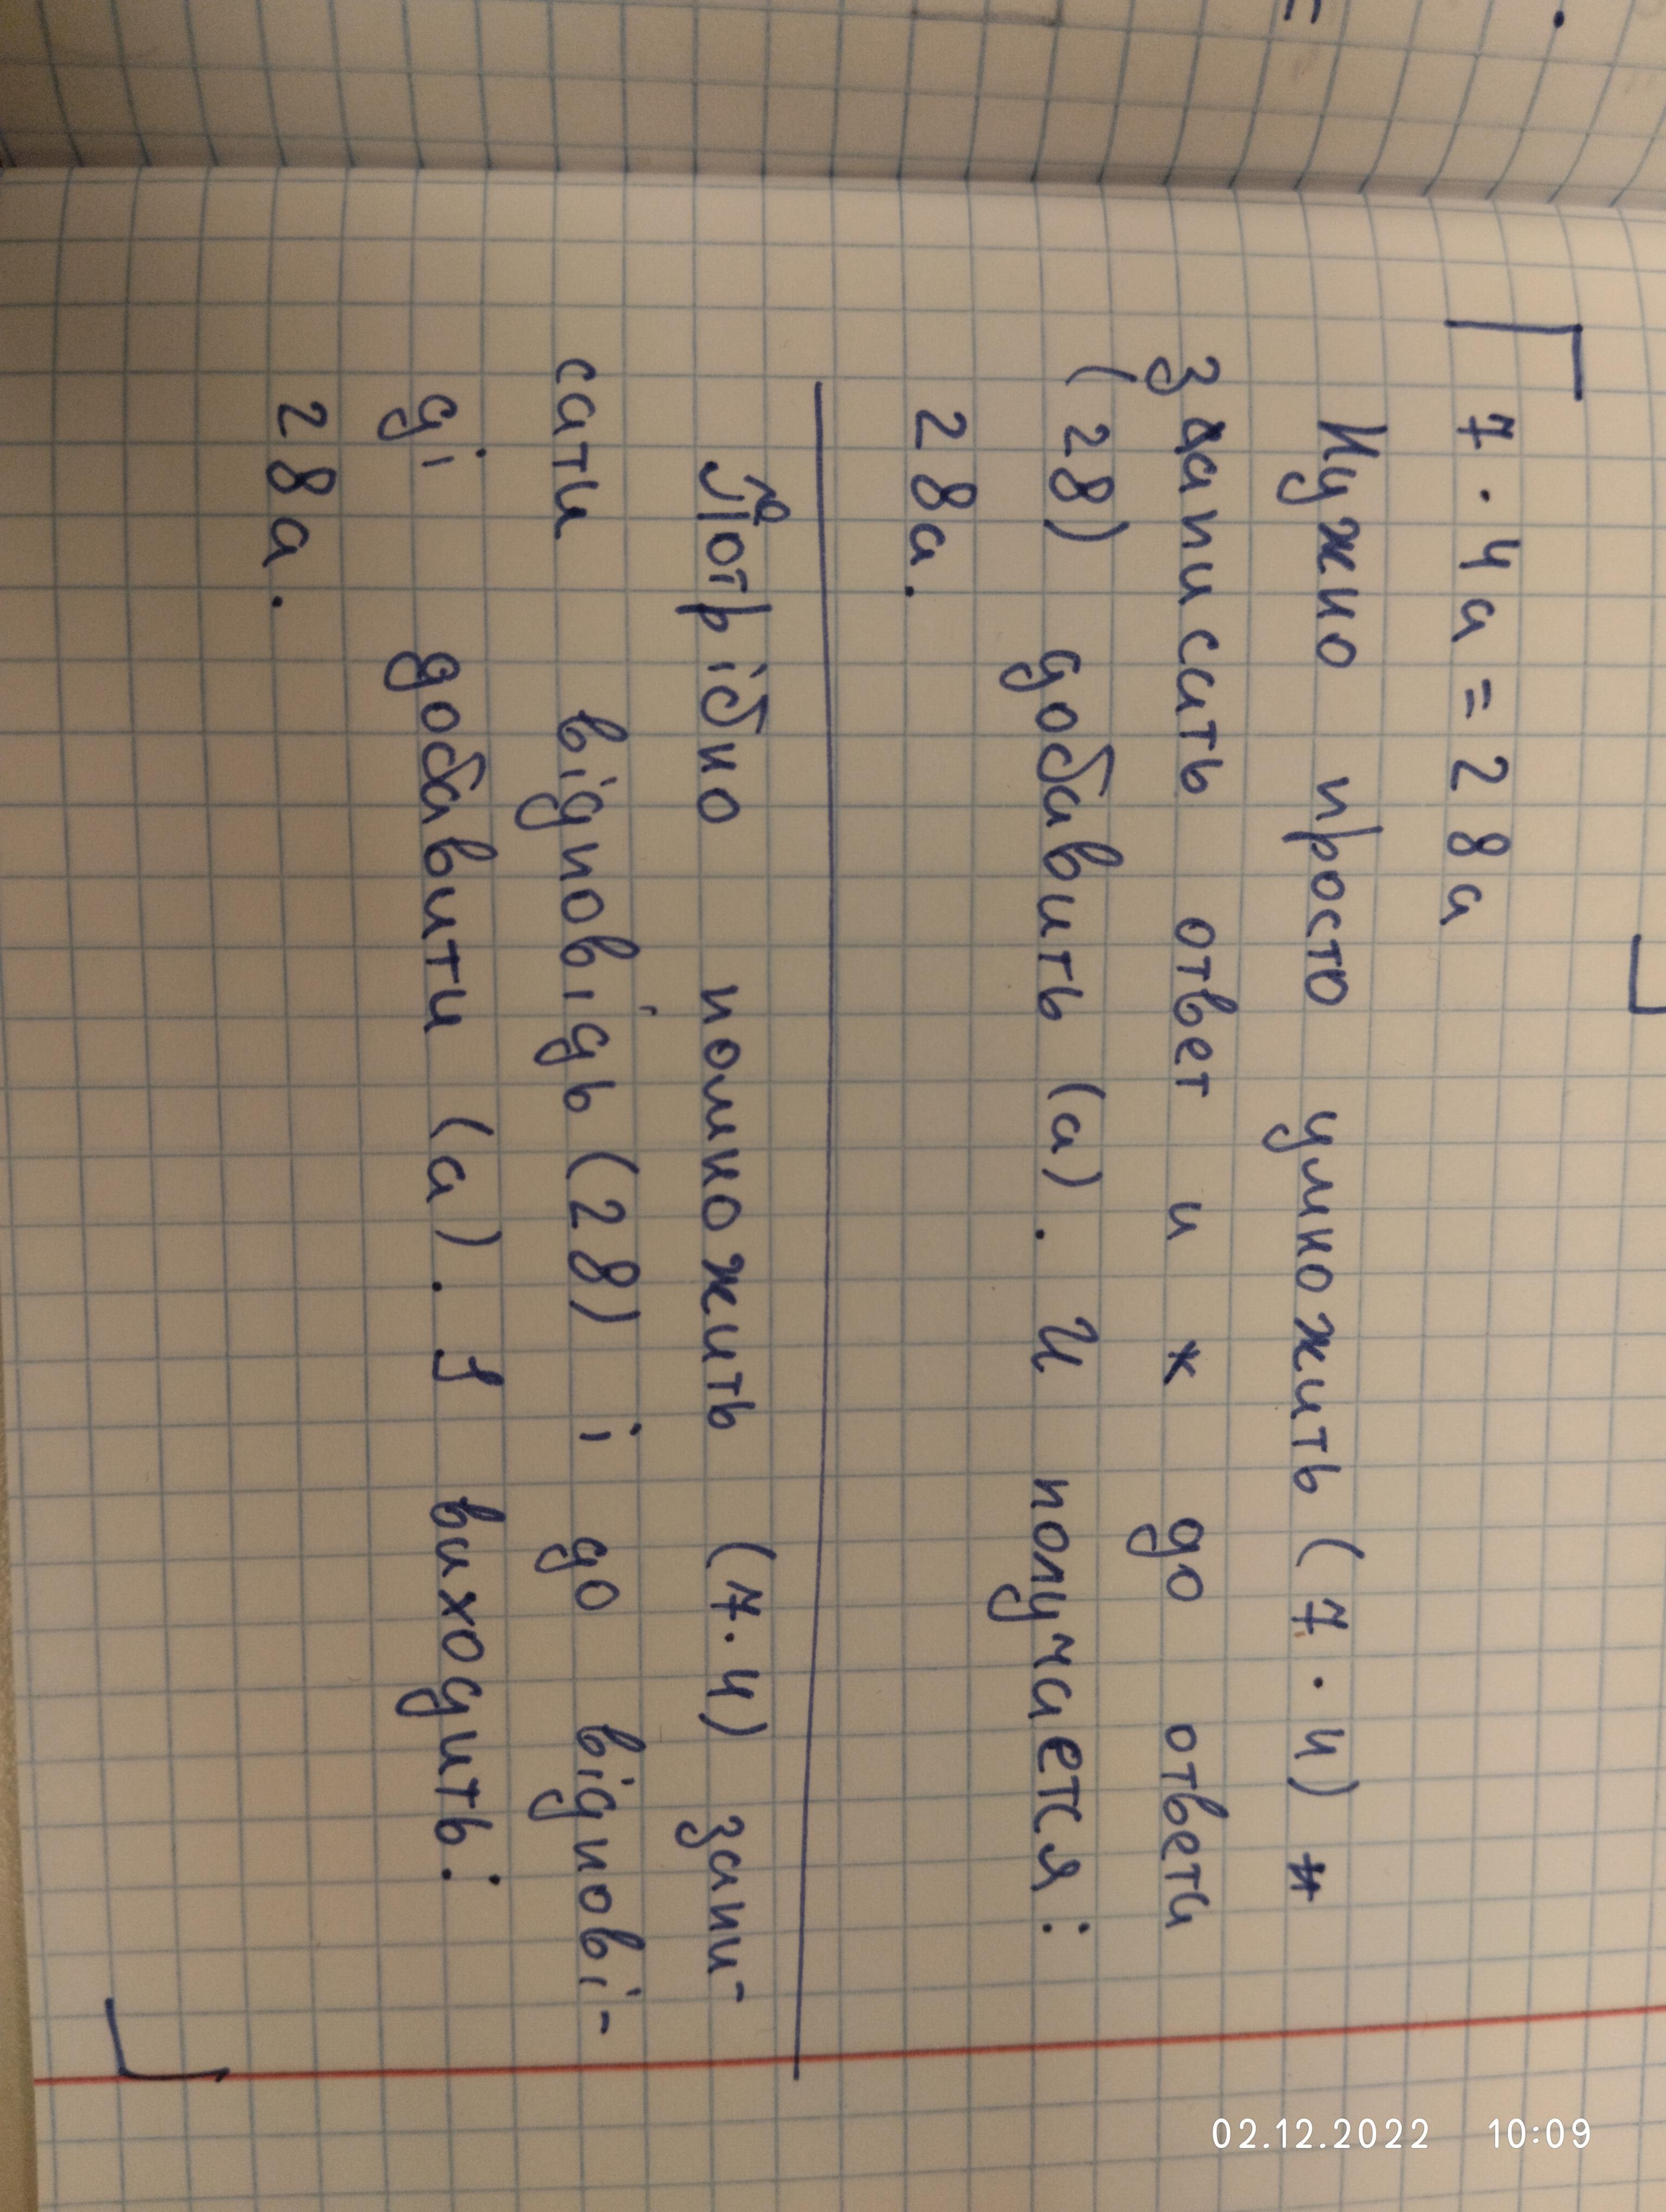 7 · 4а = 28а
Нужно просто умножить (7 · 4)
записать ответ и до ответа
(28) добавить (а). И получается:
28а.
Потрібно помножить (7·4) запи-
сати відповідь (28) і до відпові-
ді добавити (а). І виходить:
28а.
02.12.2022 10:09